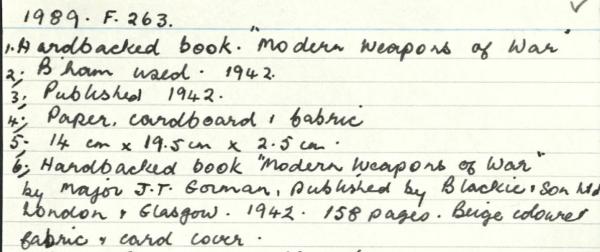 1989. F. 263.
1. Hardbacked book. "Modern Weapons of War"
2. B'ham used. 1942.
3. Published 1942.
4. Paper, cardboard, fabric
5. 14 cm x 19.5 cm x 2.5 cm.
6. Hardbacked book "Modern Weapons of War"
by Major J.T. Gorman, published by Blackie & Son Ltd
London & Glasgow. 1942. 158 pages. Beige coloured
fabric & card cover.